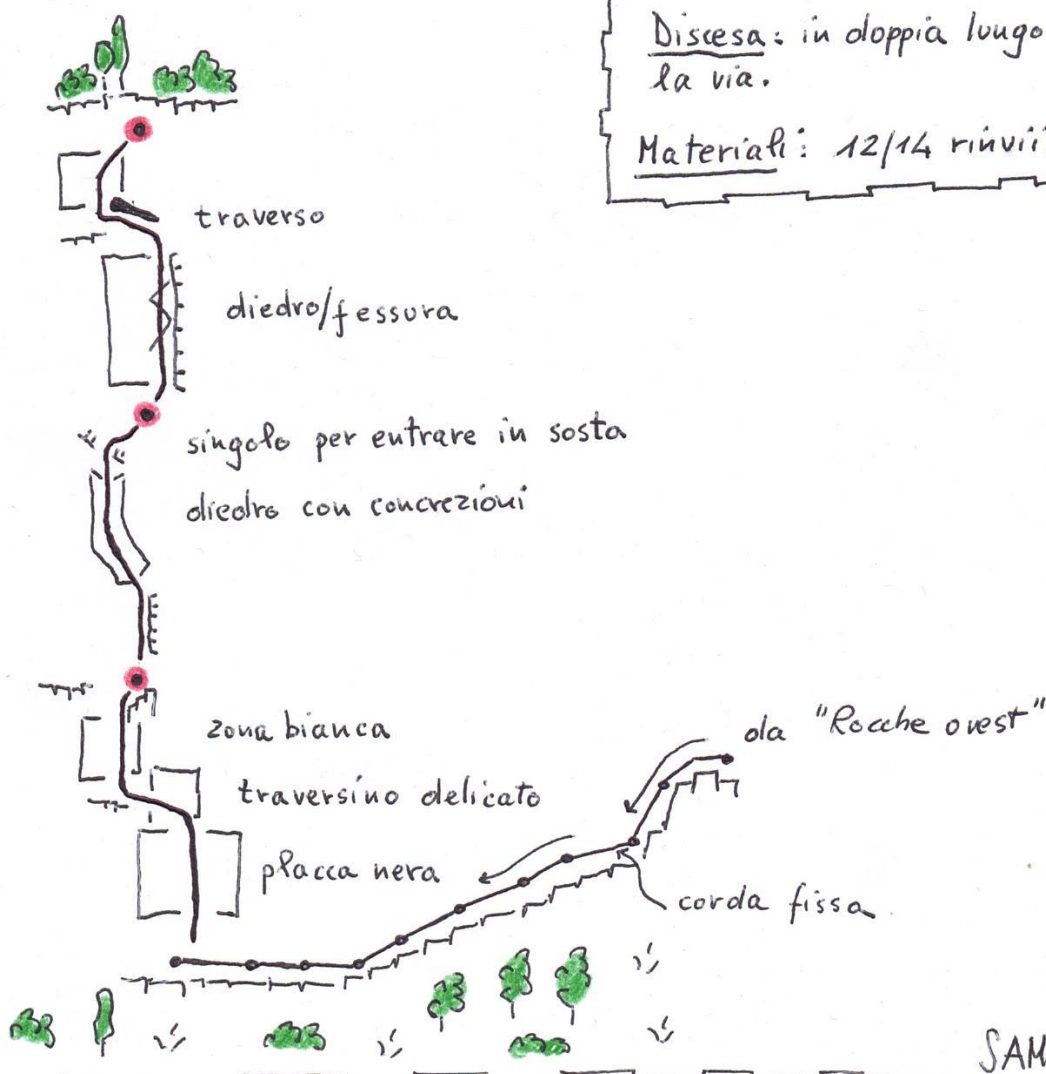 Discesa: in doppia lungo
la via.
Materiali: 12/14 rinvii
traverso
diedro/fessura
singolo per entrare in sosta
diedro con concrezioni
zona bianca
traversino delicato
placca nera
da "Rocche ovest"
corda fissa
SAM